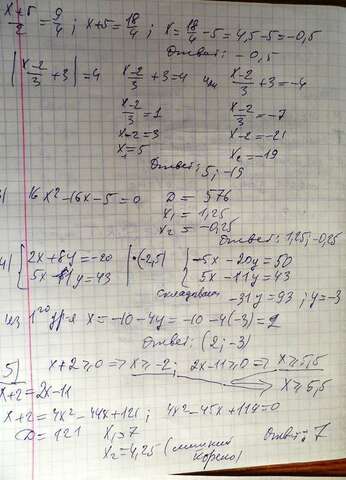 x+5/2 = 9/4; x+5 = 18/4; x = 18/4 - 5 = 4,5 - 5 = -0,5
Ответ: -0,5
|x-2/3 + 3| = 4   x-2/3 + 3 = 4 или x-2/3 + 3 = -4
x-2/3 = 1   x-2/3 = -7
x-2 = 3   x-2 = -21
x₁ = 5   x₂ = -19
Ответ: 5; -19
16x² - 16x - 5 = 0   D = 576
x₁ = 1,25
x₂ = -0,25
Ответ: 1,25; -0,25
4) { 2x + 8y = -20 | •(-2,5)   { -5x - 20y = 50
5x - 11y = 43   5x - 11y = 43
складываем -31y = 93; y = -3
из 1го ур-я x = -10 - 4y = -10 - 4(-3) = 2
Ответ: (2; -3)
5) x+2 ≥ 0 => x ≥ -2; 2x-11 ≥ 0 => x ≥ 5,5
x+2 = 2x-11   x ≥ 5,5
x+2 = 4x² - 44x + 121; 4x² - 45x + 119 = 0
D = 121   x₁ = 7
x₂ = 4,25 (лишний корень)   Ответ: 7